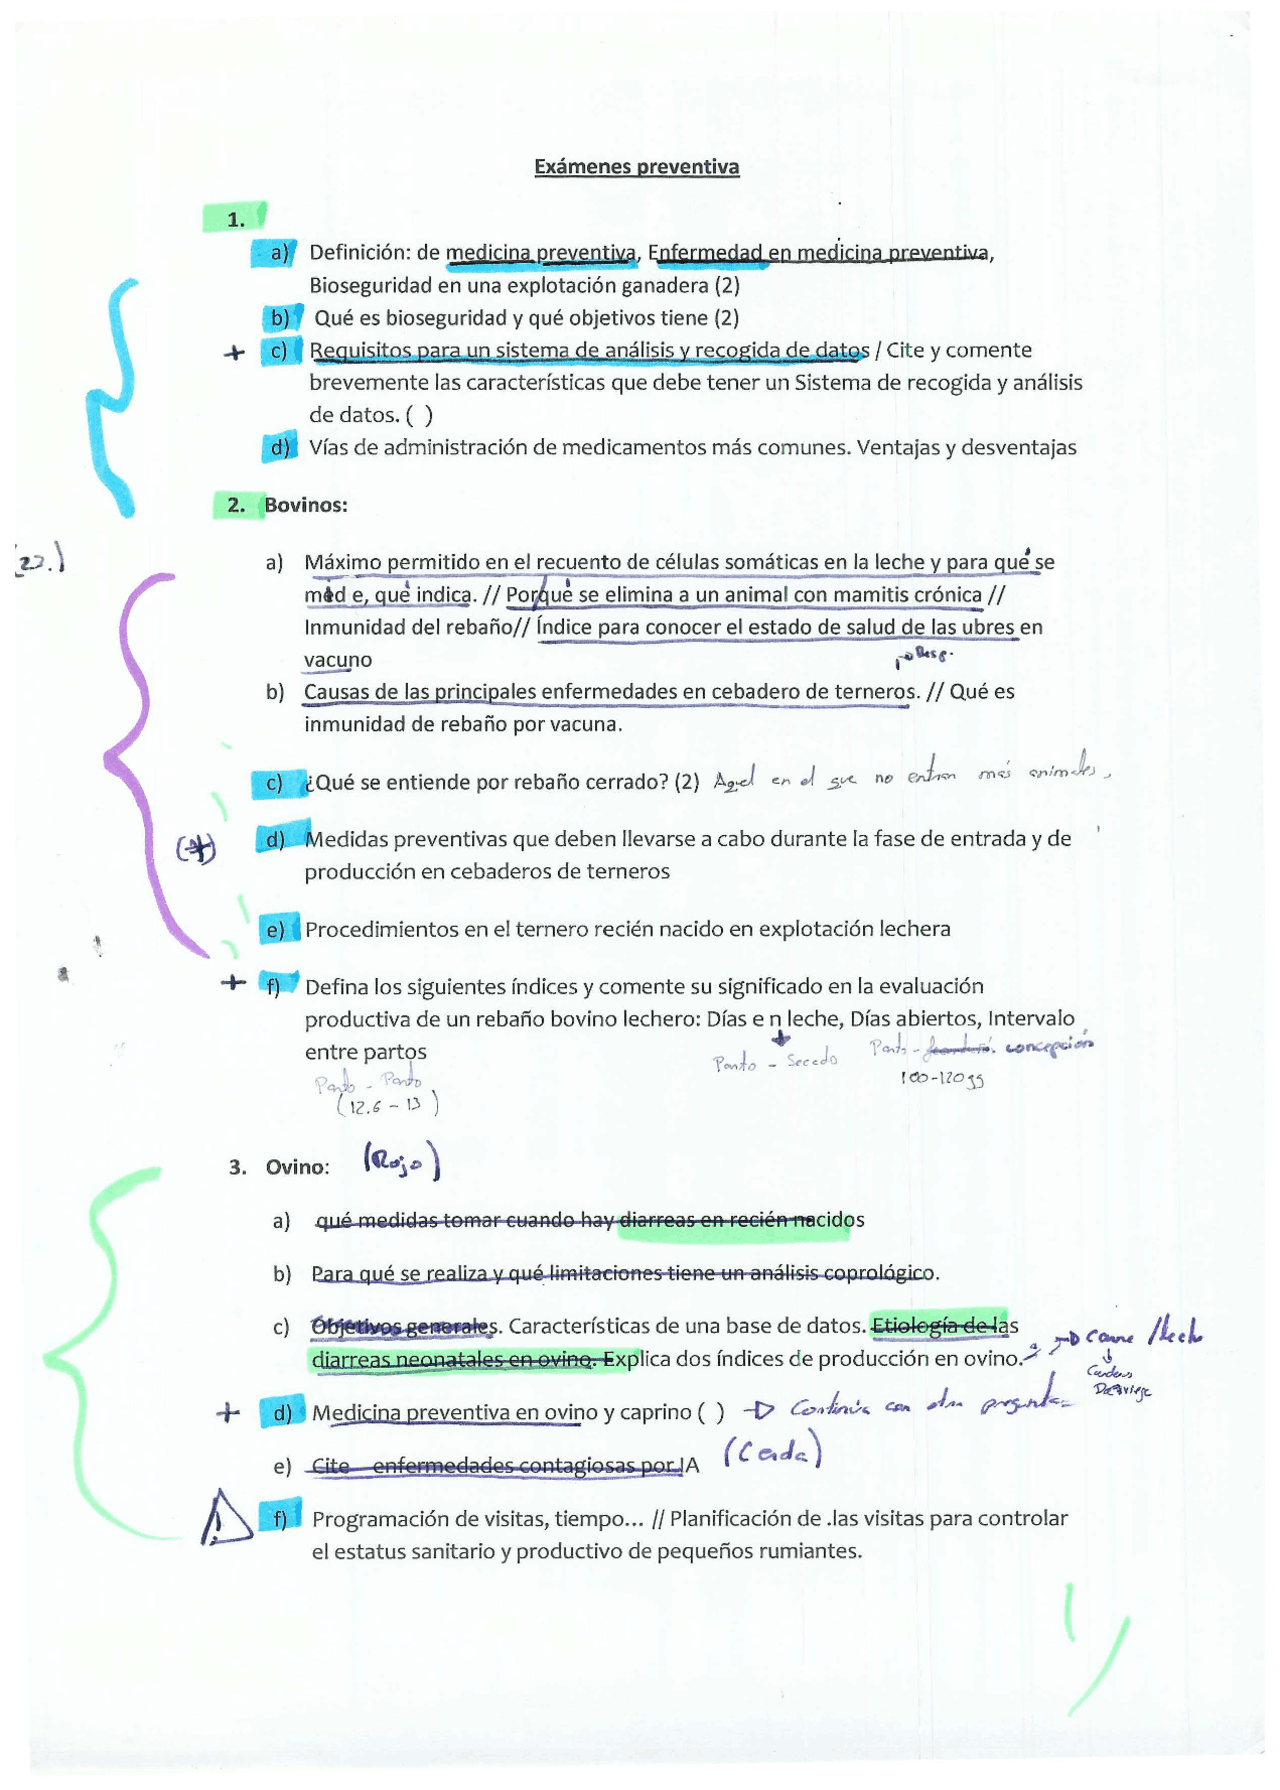 Exámenes preventiva
1.
a) Definición: de medicina preventiva, Enfermedad en medicina preventiva,
Bioseguridad en una explotación ganadera (2)
b) Qué es bioseguridad y qué objetivos tiene (2)
+ c) Requisitos para un sistema de análisis y recogida de datos / Cite y comente
brevemente las características que debe tener un Sistema de recogida y análisis
de datos. ( )
d) Vías de administración de medicamentos más comunes. Ventajas y desventajas
2. Bovinos:
a) Máximo permitido en el recuento de células somáticas en la leche y para qué se
mide, qué indica. // Porqué se elimina a un animal con mamitis crónica //
Inmunidad del rebaño// Índice para conocer el estado de salud de las ubres en
vacuno
Resp.
b) Causas de las principales enfermedades en cebadero de terneros. // Qué es
inmunidad de rebaño por vacuna.
c) ¿Qué se entiende por rebaño cerrado? (2) Aquel en el que no entran más animales.
(+) d) Medidas preventivas que deben llevarse a cabo durante la fase de entrada y de
producción en cebaderos de terneros
e) Procedimientos en el ternero recién nacido en explotación lechera
+ f) Defina los siguientes índices y comente su significado en la evaluación
productiva de un rebaño bovino lechero: Días e n leche, Días abiertos, Intervalo
entre partos
Parto - Secado Parto - concepción
Parto - Parto 100-120
(12.6 - 13)
3. Ovino: (Rojo)
a) qué medidas tomar cuando hay diarreas en recién nacidos
b) Para qué se realiza y qué limitaciones tiene un análisis coprológico.
c) Objetivos generales. Características de una base de datos. Etiología de las
diarreas neonatales en ovino. Explica dos índices de producción en ovino. → Carne / leche
+ d) Medicina preventiva en ovino y caprino ( ) → Continúa con otra pregunta
e) Cite enfermedades contagiosas por IA (Cerda)
! f) Programación de visitas, tiempo... // Planificación de .las visitas para controlar
el estatus sanitario y productivo de pequeños rumiantes.